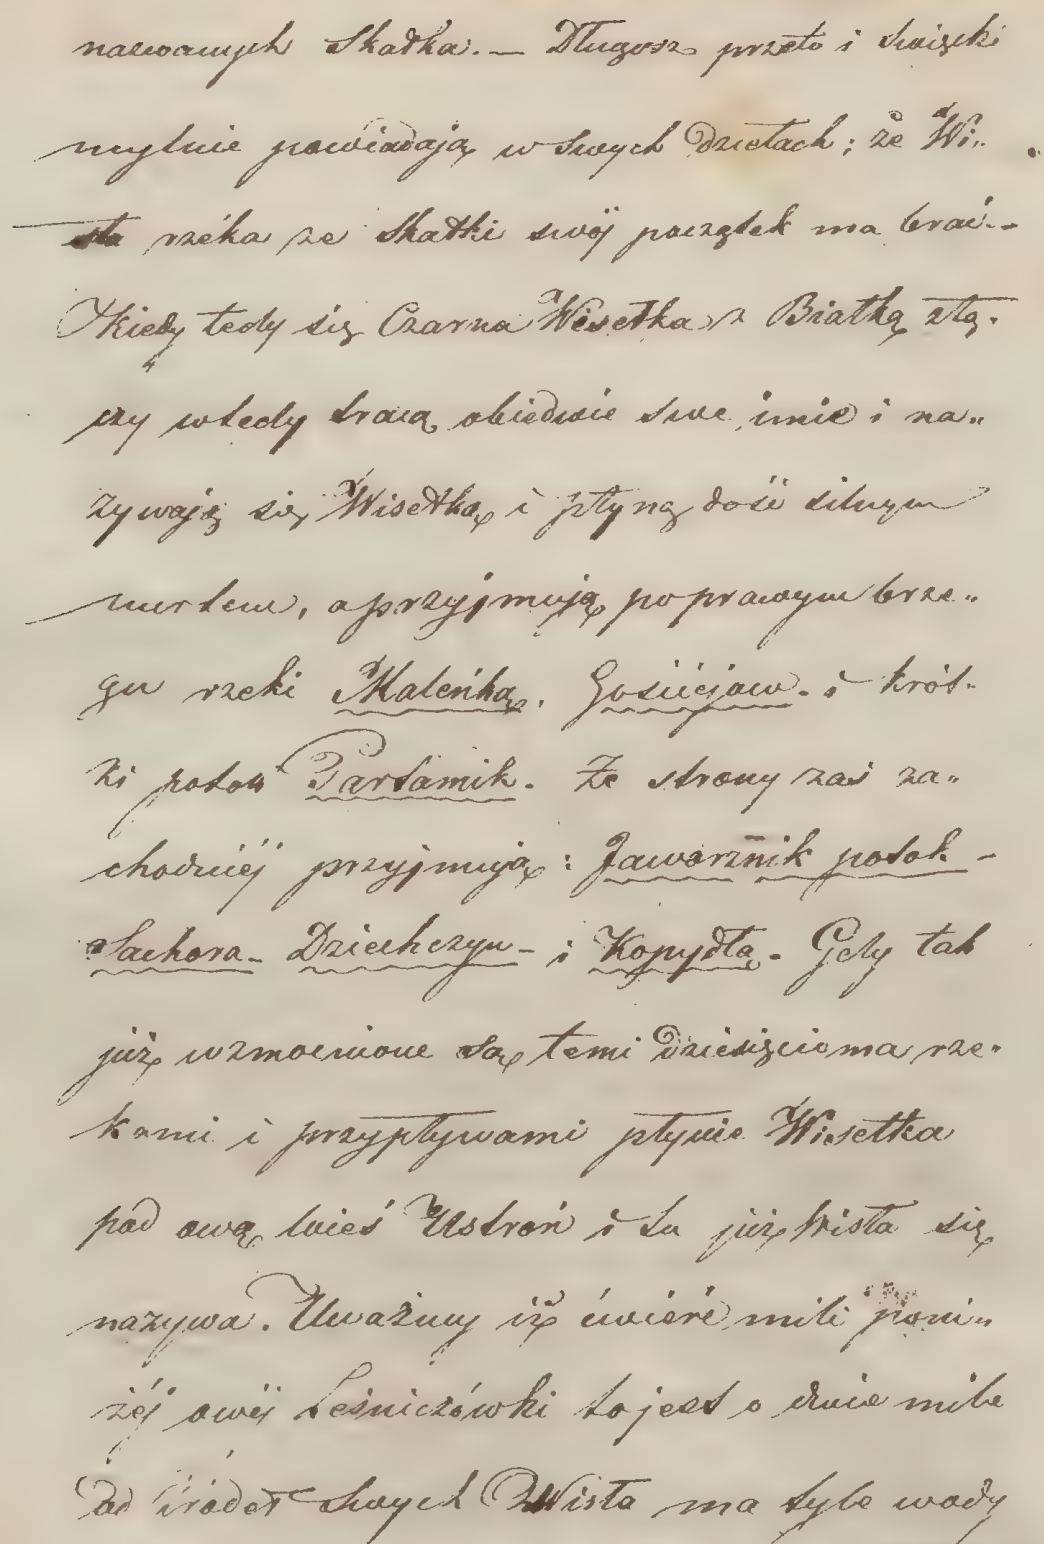 nazwanych Skałka. — Długosz przeto i Święcki
mylnie powiadają w swych dziełach; że Wi„
sła rzéka ze Skałki swój początek ma brać. -
Kiedy tedy się Czarna Wisełka z Białką złą-
czy wtedy tracą obiedwie swe imie i na„
zywają się Wisełką i płyną dość silnym
nurtem, a przyjmują po prawym brze„
gu rzeki Maleńką, Gościejow - i krót-
ki potok Partamik. Ze strony zaś za„
chodniéj przyjmują: Jaworznik potok -
Sachora - Dziechczyn - i Kopydła. Gdy tak
już wzmocnione są temi dziesięcioma rze„
kami i przypływami płynie Wisełka
pod ową wieś Ustroń i tu już Wisła się
nazywa. Uważmy iż ćwierć mili poni„
żéj owéj Leśniczówki to jest o dwie mile
od źródeł swych Wisła ma tyle wody